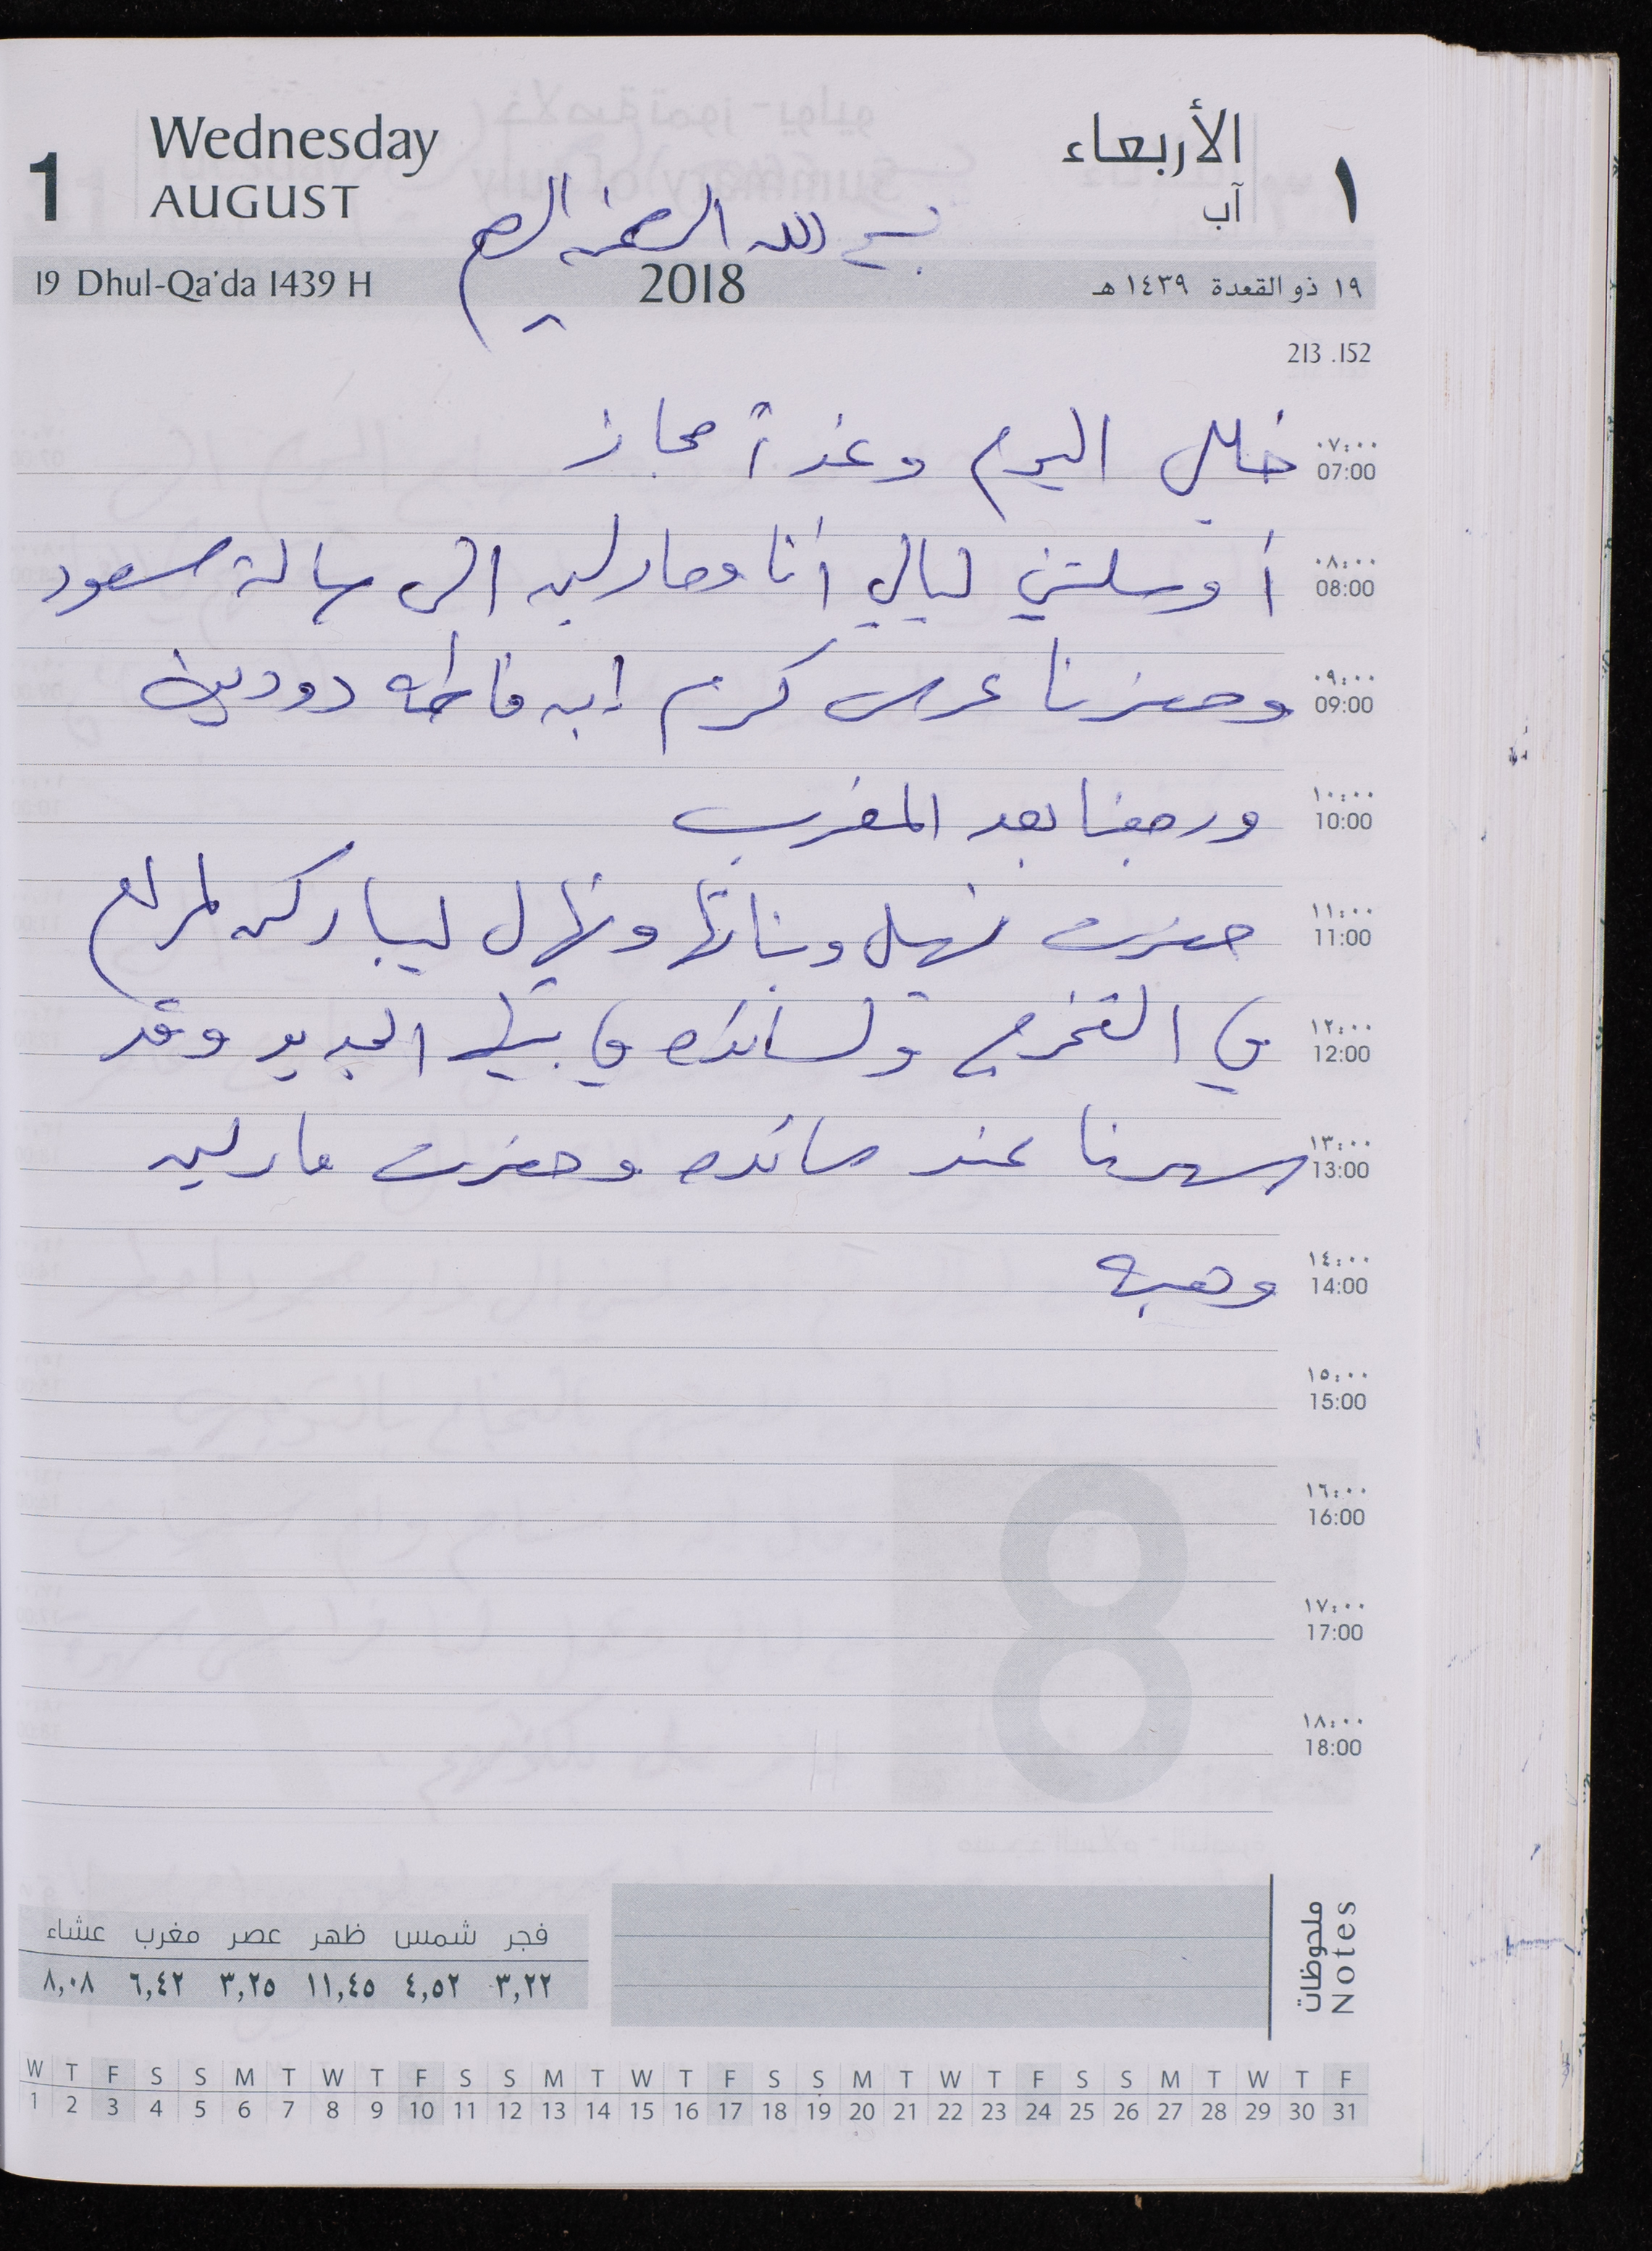 Wednesday الأربعاء
1 ١
AUGUST آب
بسم الله الرحمن الرحيم
19 Dhul-Qa'da 1439 H 2018 ١٩ ذو القعدة ١٤٣٩ هـ
213 .152
٠٧:٠٠
07:00 خليل اليوم وغداً مجاز
٠٨:٠٠
08:00 أوصلتني ليالي أنا ومارلين الى صالة سعود
٠٩:٠٠
09:00 وحضرنا عرس كرم ابن فاطمه دودين
١٠:٠٠
10:00 ورجعنا بعد المغرب
١١:٠٠
11:00 حضرت نهيل وبناتها ونهال ليباركن لمرام
١٢:٠٠
12:00 في التخرج ولسائده في بيتها الجديد وقد
١٣:٠٠
13:00 سهرنا عند سائده وحضرت مارلين
١٤:٠٠
14:00 وهبه
١٥:٠٠
15:00
١٦:٠٠
16:00
١٧:٠٠
17:00
١٨:٠٠
18:00
8
ملحوظات
Notes
فجر شمس ظهر عصر مغرب عشاء
٣,٢٢ ٤,٥٢ ١١,٤٥ ٣,٢٥ ٦,٤٢ ٨,٠٨
W T F S S M T W T F S S M T W T F S S M T W T F S S M T W T F
1 2 3 4 5 6 7 8 9 10 11 12 13 14 15 16 17 18 19 20 21 22 23 24 25 26 27 28 29 30 31